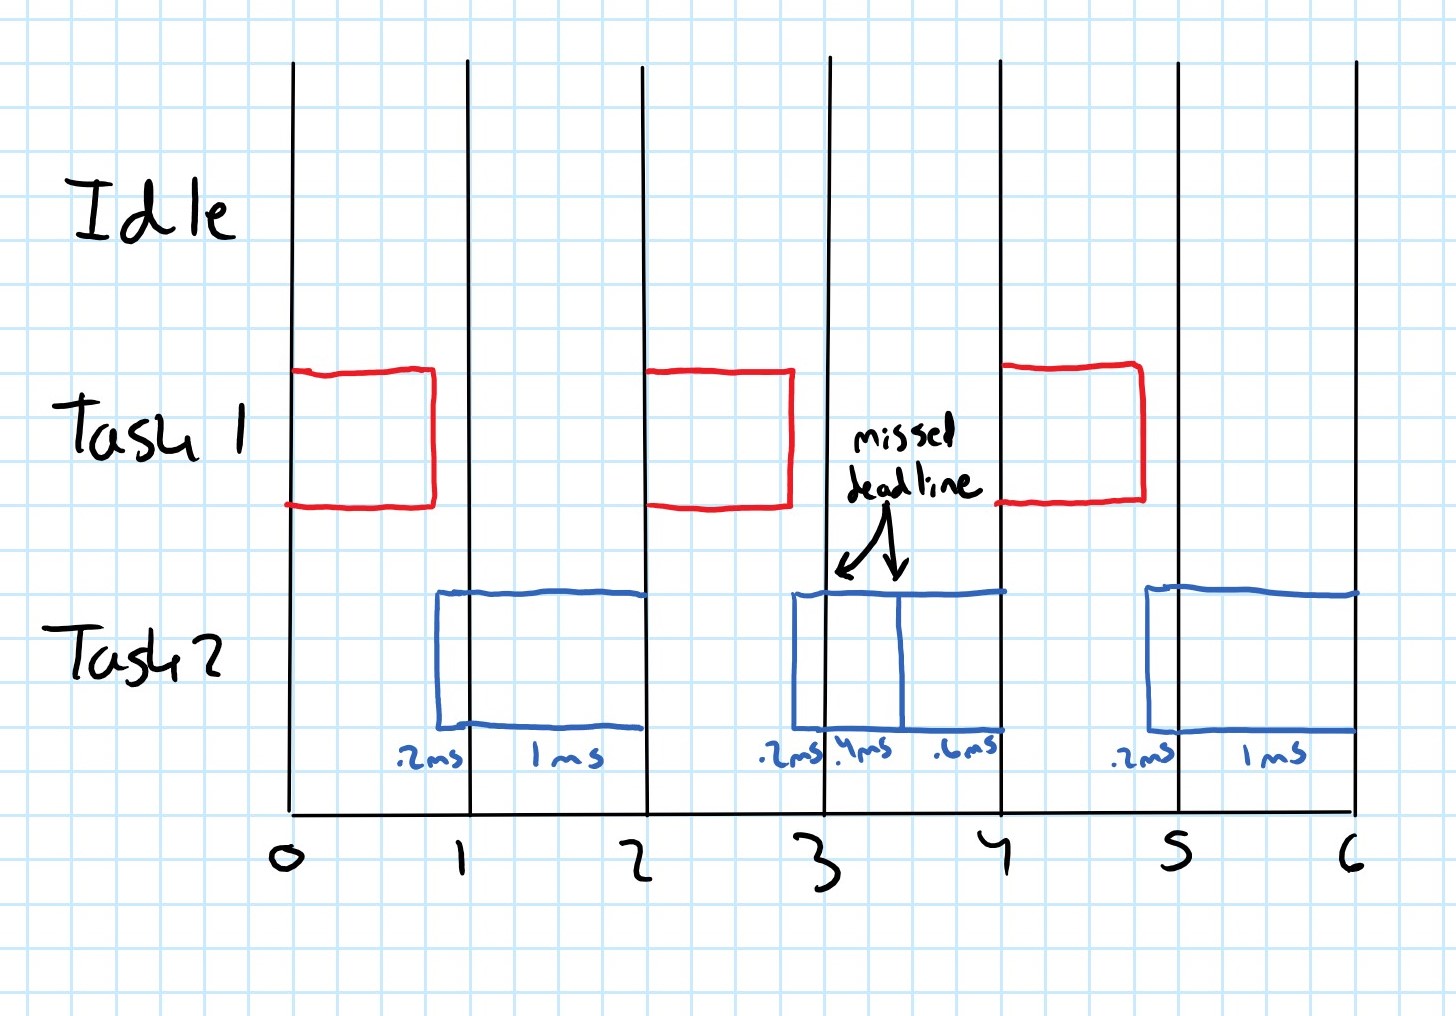 Idle
Task 1
missed
deadline
Task 2
.2ms 1ms .2ms .4ms .6ms .2ms 1ms
0 1 2 3 4 5 6